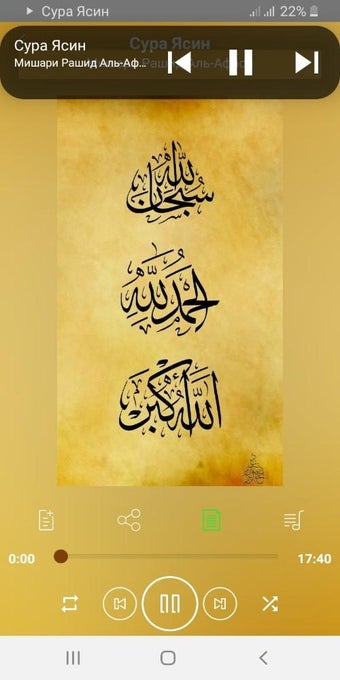 Сура Ясин
22%
Сура Ясин
Сура Ясин
Мишари Рашид Аль-Аф...
سبحان الله
الحمد لله
الله أكبر
0:00
17:40